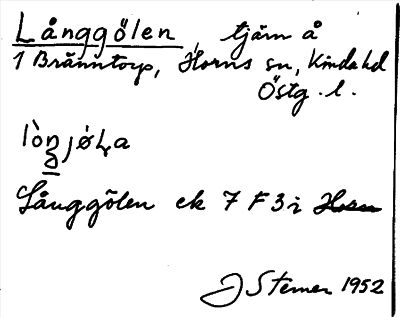 Långgölen, tjärn å
1 Bränntorp, Horns sn, Kinda hd
Östg. l.
Långgölen ek 7 F 3 i Horn
J Stemer 1952